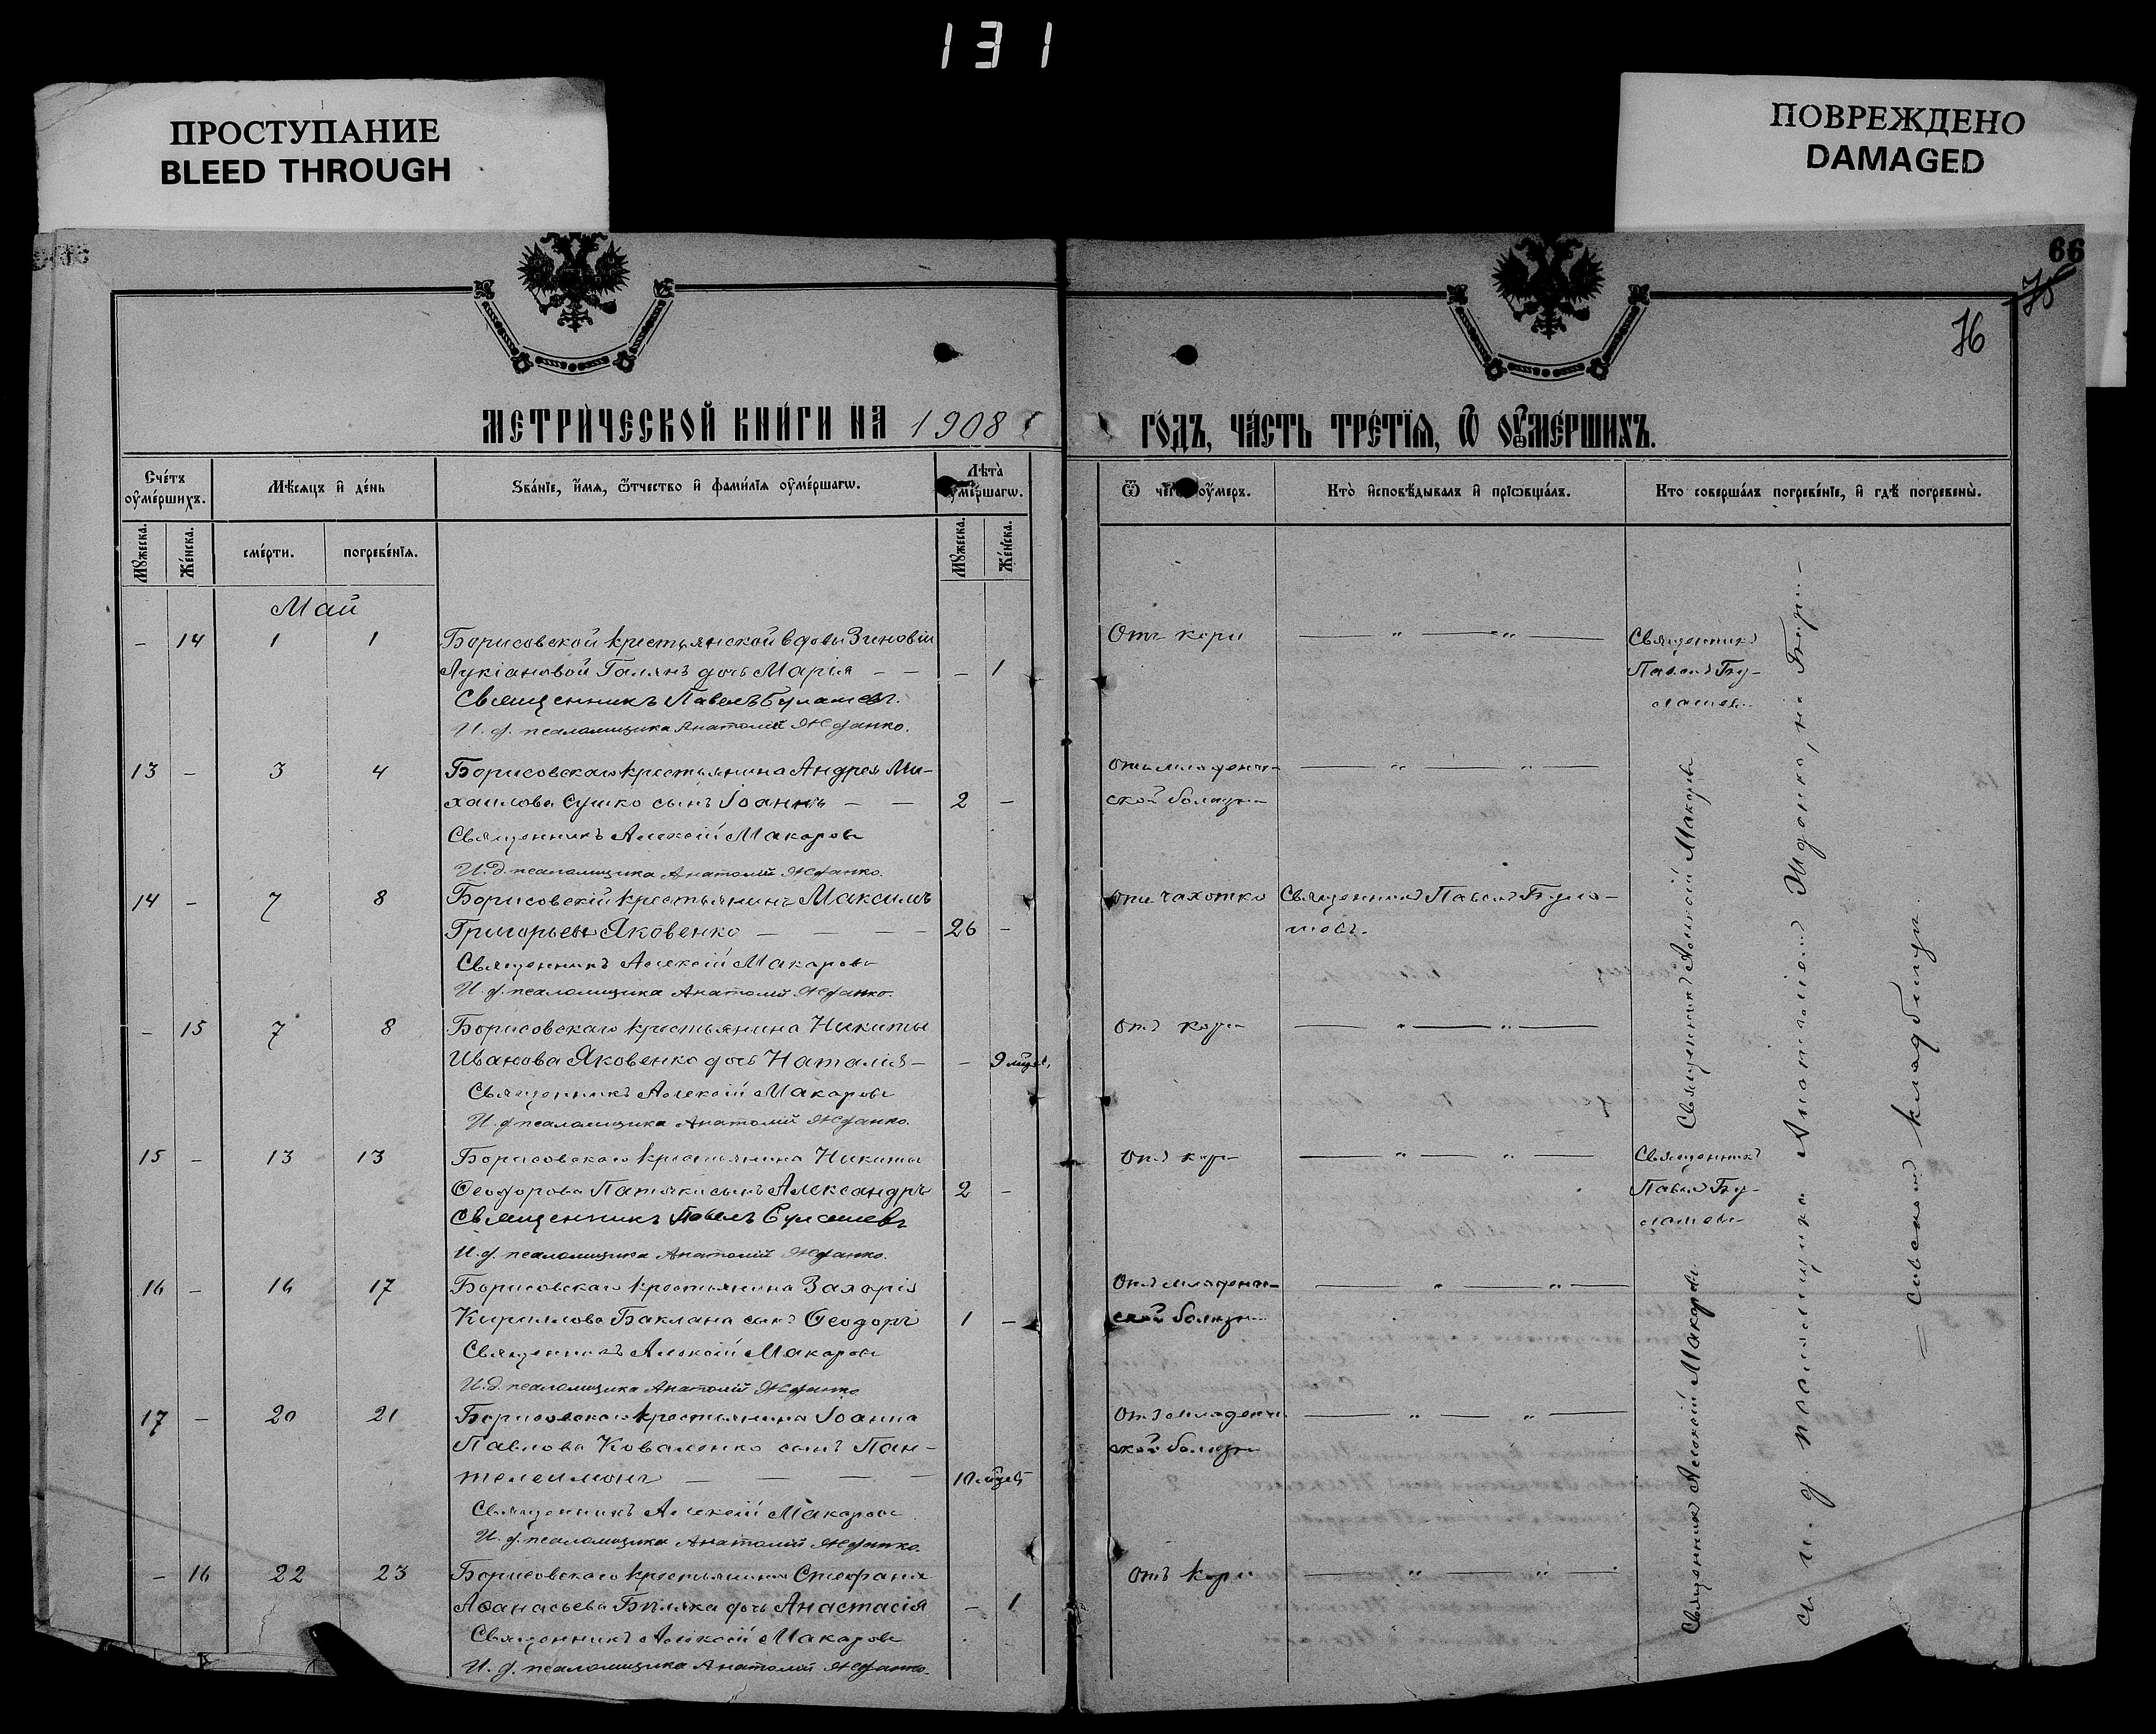 131
ПРОСТУПАНИЕ
BLEED THROUGH
ПОВРЕЖДЕНО
DAMAGED
66
75
76
МЕТРИ́ЧЕСКОЙ КНИ́ГИ НА 1908
ГО́ДЪ, ЧА́СТЬ ТРЕ́ТЇѦ, Ѿ ОУ҆МЕ́РШИХЪ.
Сче́тъ оу҆ме́ршихъ.
Мꙋ́жеска.
Же́нска.
Мѣ́сяцъ и҆ де́нь
сме́рти.
погребе́нїѧ.
Ѕва́нїе, и҆́мѧ, ѻ҆́тчество и҆ фами́лїѧ оу҆ме́ршагѡ.
Лѣ́та̀ оу҆ме́ршагѡ.
Мꙋ́жеска.
Же́нска.
Ѿ чегѡ̀ оу҆́меръ.
Кто̀ и҆сповѣ́дывалъ и҆ прїѡбща́лъ.
Кто соверша́лъ погребе́нїе, и҆ гдѣ̀ погребены̀.
Май
- 14 1 1 Борисовской крестьянской вдовы Зиновіи
Лукіановой Галянъ дочь Марія — — - 1
Священникъ Павелъ Булашевъ.
И. д. псаломщика Анатолій Жданко.
Отъ кори — " — " —
Священникъ
Павелъ Бу-
лашевъ
13 - 3 4 Борисовскаго крестьянина Андрея Ми-
хаилова Сушко сынъ Іоаннъ — — 2 -
Священникъ Алексій Макаровъ
И. д. псаломщика Анатолій Жданко.
отъ младенче-
ской болѣзни — " — " —
14 - 7 8 Борисовскій крестьянинъ Максимъ
Григорьевъ Яковенко — — — — 26 -
Священникъ Алексій Макаровъ
И. д. псаломщика Анатолій Жданко.
отъ чахотки Священникъ Павелъ Була-
шевъ.
- 15 7 8 Борисовскаго крестьянина Никиты
Иванова Яковенко дочь Наталія — - 9 мѣсяц.
Священникъ Алексій Макаровъ
И. д. псаломщика Анатолій Жданко.
отъ кори — " — " —
15 - 13 13 Борисовскаго крестьянина Никиты
Ѳеодорова сынъ Александръ 2 -
Священникъ Павелъ Булашевъ
И. д. псаломщика Анатолій Жданко.
отъ кори — " — " —
Священникъ
Павелъ Бу-
лашевъ
16 - 16 17 Борисовскаго крестьянина Захарія
Кириллова Баклана сынъ Ѳеодоръ 1 -
Священникъ Алексій Макаровъ
И. д. псаломщика Анатолій Жданко
Отъ младенче-
ской болѣзни — " — " —
17 - 20 21 Борисовскаго крестьянина Іоанна
Павлова Коваленко сынъ Пан-
телеимонъ — — — — 10 мѣсяц.
Священникъ Алексій Макаровъ
И. д. псаломщика Анатолій Жданко.
Отъ младенче-
ской болѣзни — " — " —
- 16 22 23 Борисовскаго крестьянина Стефана
Аѳанасьева Биляка дочь Анастасія - 1
Священникъ Алексій Макаровъ
И. д. псаломщика Анатолій Жданко.
Отъ кори — " — " —
Священникъ Алексій Макаровъ
Священникъ Алексій Макаровъ.
Священникъ Алексій Макаровъ
съ и. д. псаломщика Анатоліемъ Жданко, на Бори-
= совскомъ кладбищѣ.